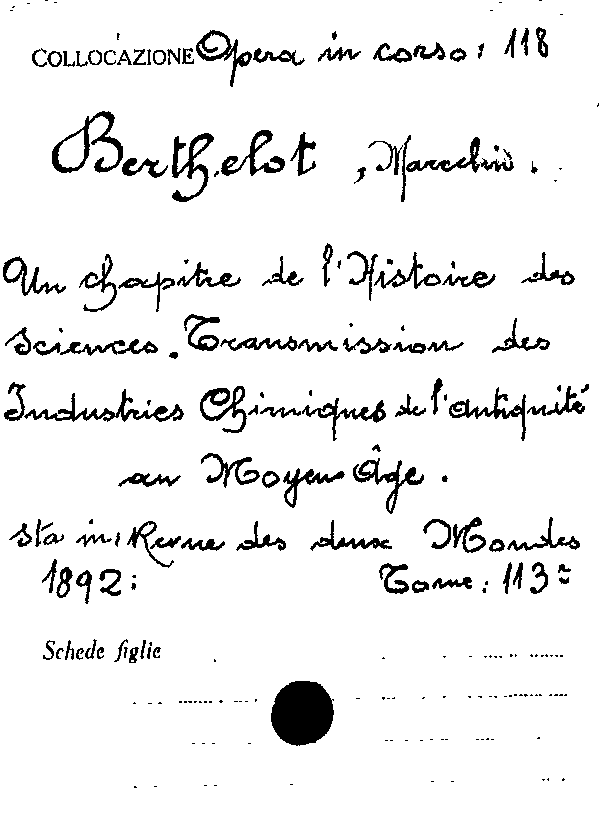 COLLOCAZIONE Opera in corso: 118
Berthelot, Marcelin.
Un chapitre de l'Histoire des
Sciences. Transmission des
Industries Chimiques de l'antiquité
au Moyen Âge.
sta in: Revue des deux Mondes
1892: Tome: 113º
Schede figlie